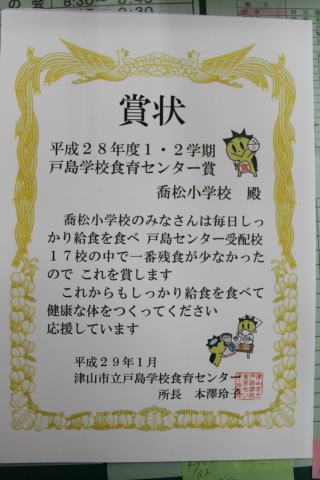 の 会
賞状
平成２８年度１・２学期
戸島学校食育センター賞
喬松小学校　殿
喬松小学校のみなさんは毎日しっ
かり給食を食べ 戸島センター受配校
１７校の中で一番残食が少なかった
ので これを賞します
これからもしっかり給食を食べて
健康な体をつくってください
応援しています
平成２９年１月
津山市立戸島学校食育センター
所長　本澤玲子